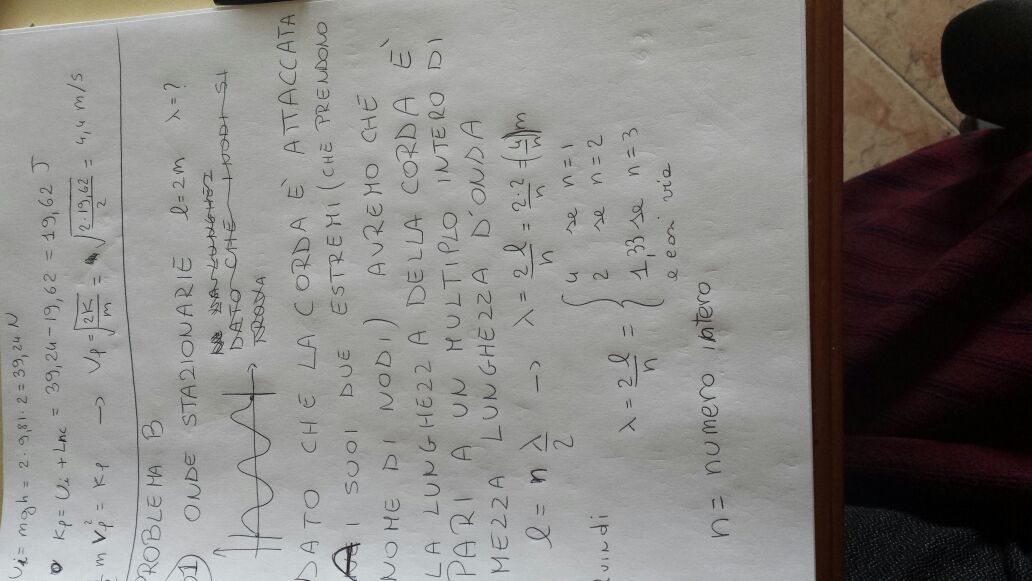 Ui = mgh = 2·9,81·2 = 39,24 N
Kf = Ui + Lnc = 39,24 - 19,62 = 19,62 J
m Vf² = Kf → Vf = √(2K/m) = √(2·19,62/2) = 4,4 m/s
PROBLEMA B
D1) ONDE STAZIONARIE l = 2m λ = ?
DATO CHE I NODI SI
TROVA
DATO CHE LA CORDA È ATTACCATA
I SUOI DUE ESTREMI (CHE PRENDONO
NOME DI NODI) AVREMO CHE
LA LUNGHEZZA DELLA CORDA È
PARI A UN MULTIPLO INTERO DI
MEZZA LUNGHEZZA D'ONDA
l = n λ/2 → λ = 2l/n = 2·2/n = (4/n) m
QUINDI λ = 2l/n = { 4 se n=1
2 se n=2
1,33 se n=3
e così via
n = numero intero